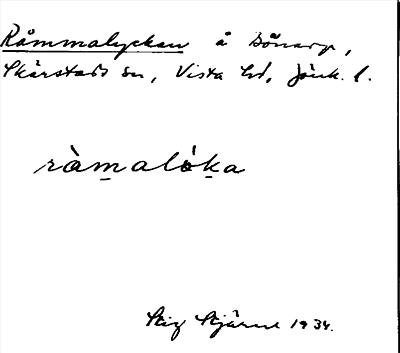 Råmmalyckan å Bönarp,
Skärstads sn, Vista hd, Jönk. l.
ràmalòka
Stig Stjärne 1934.